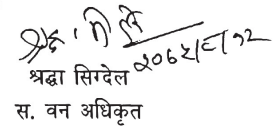 २०७५/८/१२
श्रद्धा सिग्देल
स. वन अधिकृत